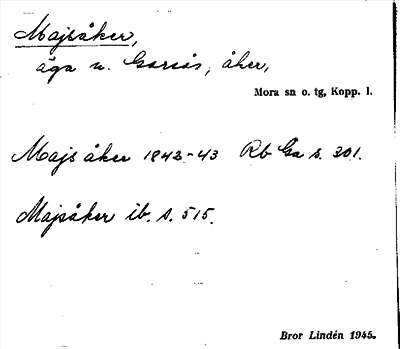 Majsåker,
äga u. Garsås, åker,
Mora sn o. tg, Kopp. l.
Majs åker 1842-43 Rb Ga s. 301.
Majsåker ib. s. 515.
Bror Lindén 1945.